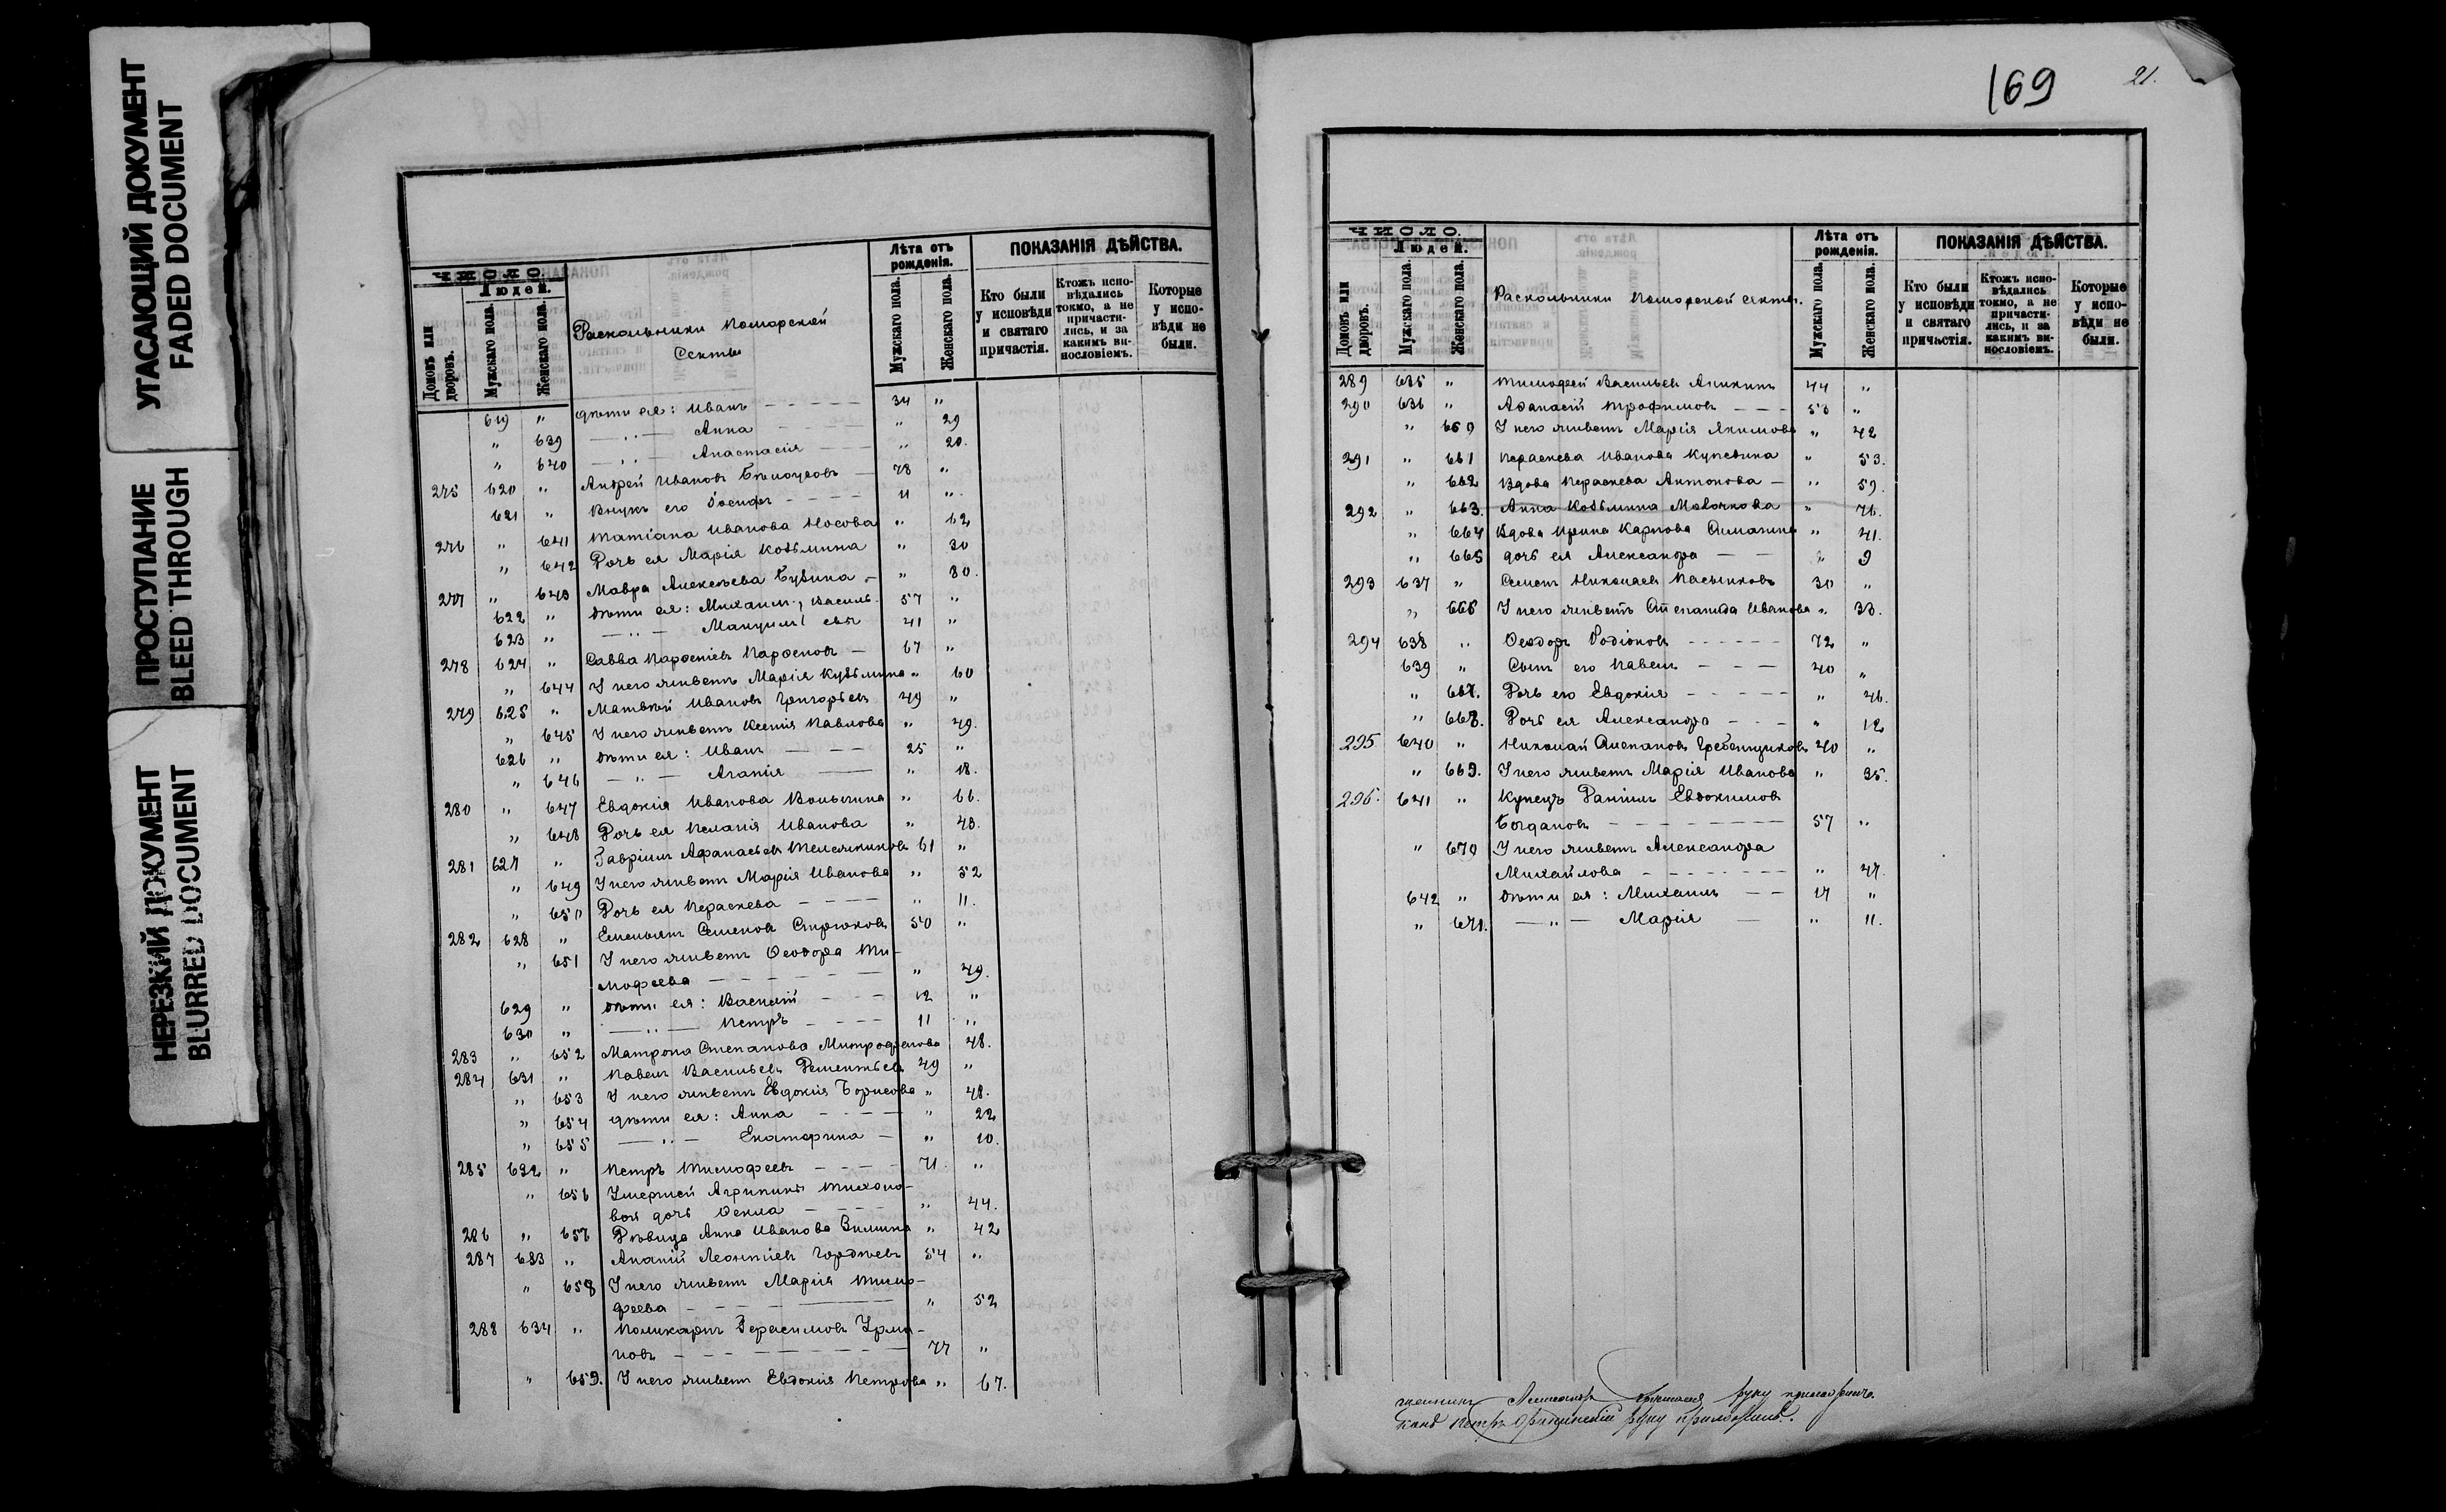 УГАСАЮЩИЙ ДОКУМЕНТ
FADED DOCUMENT
ПРОСТУПАНИЕ
BLEED THROUGH
НЕРЕЗКИЙ ДОКУМЕНТ
BLURRED DOCUMENT
ЧИСЛО.
Людей.
Домовъ или дворовъ.
Мужскаго пола.
Женскаго пола.
Раскольники Поморской
Секты
Лѣта отъ рожденія.
Мужскаго пола.
Женскаго пола.
ПОКАЗАНІЯ ДѢЙСТВА.
Кто были у исповѣди и святаго причастія.
Ктожъ испо-вѣдались токмо, а не причасти-лись, и за какимъ ви-нословіемъ.
Которые у испо-вѣди не были.
619 " дѣти ея: Иванъ 34 "
" 639 — " — Анна " 29
" 640 — " — Анастасія " 20.
275 620 " Андрей Ивановъ 78 "
621 " Внукъ его Іосифъ 11 "
276 " 641 Татіана Иванова Носова " 62
" 642 Дочь ея Марія Козьмина " 30
277 " 643 Мавра Алексѣева Бузина " 80.
622 " Дѣти ея: Михаилъ, Василь- 57 "
623 " — " — евы 41 "
278 624 " Савва Парѳеніевъ Парѳеновъ 67 "
" 644 У него живетъ Марія Кузьмина " 60
279 625 " Матвѣй Ивановъ Григорьевъ 49 "
" 645 У него живетъ Ксенія Павлова " 49.
626 " Дѣти ея: Иванъ 25 "
" 646 — " — Агапія " 18.
280 " 647 Евдокія Иванова " 66.
" 648 Дочь ея Пелагія Иванова " 43.
281 627 " Гавріилъ Аѳанасьевъ 61 "
" 649 У него живетъ Марія Иванова " 52
" 650 Дочь ея Параскева " 11.
282 628 " Емельянъ Семеновъ 50 "
" 651 У него живетъ Ѳеодора Ти-
моѳеева " 49.
629 " Дѣти ея: Василій 12 "
630 " — " — Петръ 11 "
283 " 652 Матрона Степанова Митрофанова 48.
284 631 " Павелъ Васильевъ 49 "
" 653 У него живетъ Евдокія Борисова " 48.
" 654 дѣти ея: Анна " 22
" 655 — " — Екатерина " 10.
285 632 " Петръ Тимоѳеевъ 71 "
" 656 Умершей Агрипины Тихоно-
вой дочь Ѳекла " 44.
286 " 657 Дѣвица Анна Иванова Зимина " 42
287 633 " Ананій Леонтіевъ Гордѣевъ 54 "
" 658 У него живетъ Марія Тимо-
феева " 52
288 634 " Поликарпъ Герасимовъ Урма-
новъ 77 "
" 659. У него живетъ Евдокія Петрова " 67.
169
21.
ЧИСЛО.
Людей.
Домовъ или дворовъ.
Мужскаго пола.
Женскаго пола.
Раскольники Поморской секты.
Лѣта отъ рожденія.
Мужскаго пола.
Женскаго пола.
ПОКАЗАНІЯ ДѢЙСТВА.
Кто были у исповѣди и святаго причастія.
Ктожъ испо-вѣдались токмо, а не причасти-лись, и за какимъ ви-нословіемъ.
Которые у испо-вѣди не были.
289 635 " Тимоѳей Васильевъ Аникинъ 44 "
290 636 " Аѳанасій Трофимовъ 53 "
" 660 У него живетъ Марія Якимова " 42
291 " 661 Параскева Иванова " 53.
" 662 Вдова Параскева Антонова " 59.
292 " 663. Анна Козьмина " 76.
" 664 Вдова Ирина Карпова " 41.
" 665 дочь ея Александра " 9
293 637 " Семенъ Николаевъ Пасынковъ 30 "
" 666 У него живетъ Степанида Иванова " 33.
294 638 " Ѳеодоръ Родіоновъ 72 "
639 " Сынъ его Павелъ 40 "
" 667. Дочь его Евдокія " 46.
" 668. Дочь ея Александра " 12
295 640 " Николай Степановъ Гребенщиковъ 40 "
" 669. У него живетъ Марія Иванова " 35.
296. 641 " Купецъ Даніилъ Евдокимовъ
Богдановъ 57 "
" 670 У него живетъ Александра
Михайлова " 47.
642 " Дѣти ея: Михаилъ 17 "
" 671. — " — Марія " 11.
руку приложилъ.
Петръ руку приложилъ.